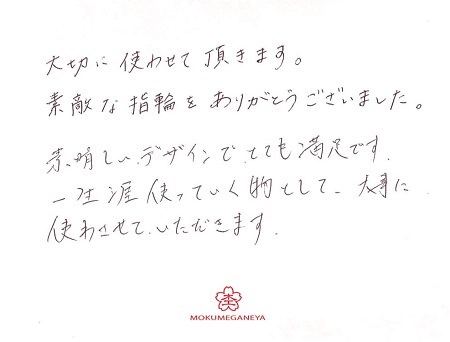 大切に使わせて頂きます。
素敵な指輪をありがとうございました。
素晴しいデザインでとても満足です.
一生涯使っていく物として、大事に
使わさせていただきます.
MOKUMEGANEYA